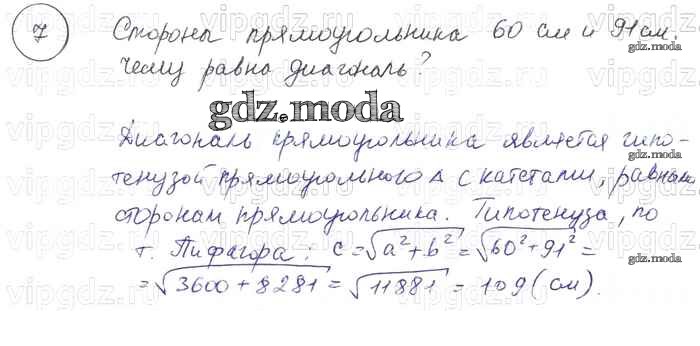 7
Стороны прямоугольника 60 см и 91 см.
Чему равна диагональ?
gdz.moda
Диагональ прямоугольника является гипо-
тенузой прямоугольного Δ с катетами, равными
сторонам прямоугольника. Гипотенуза, по
т. Пифагора: c=√a²+b² = √60²+91² =
=√3600+8281 = √11881 = 109 (см).